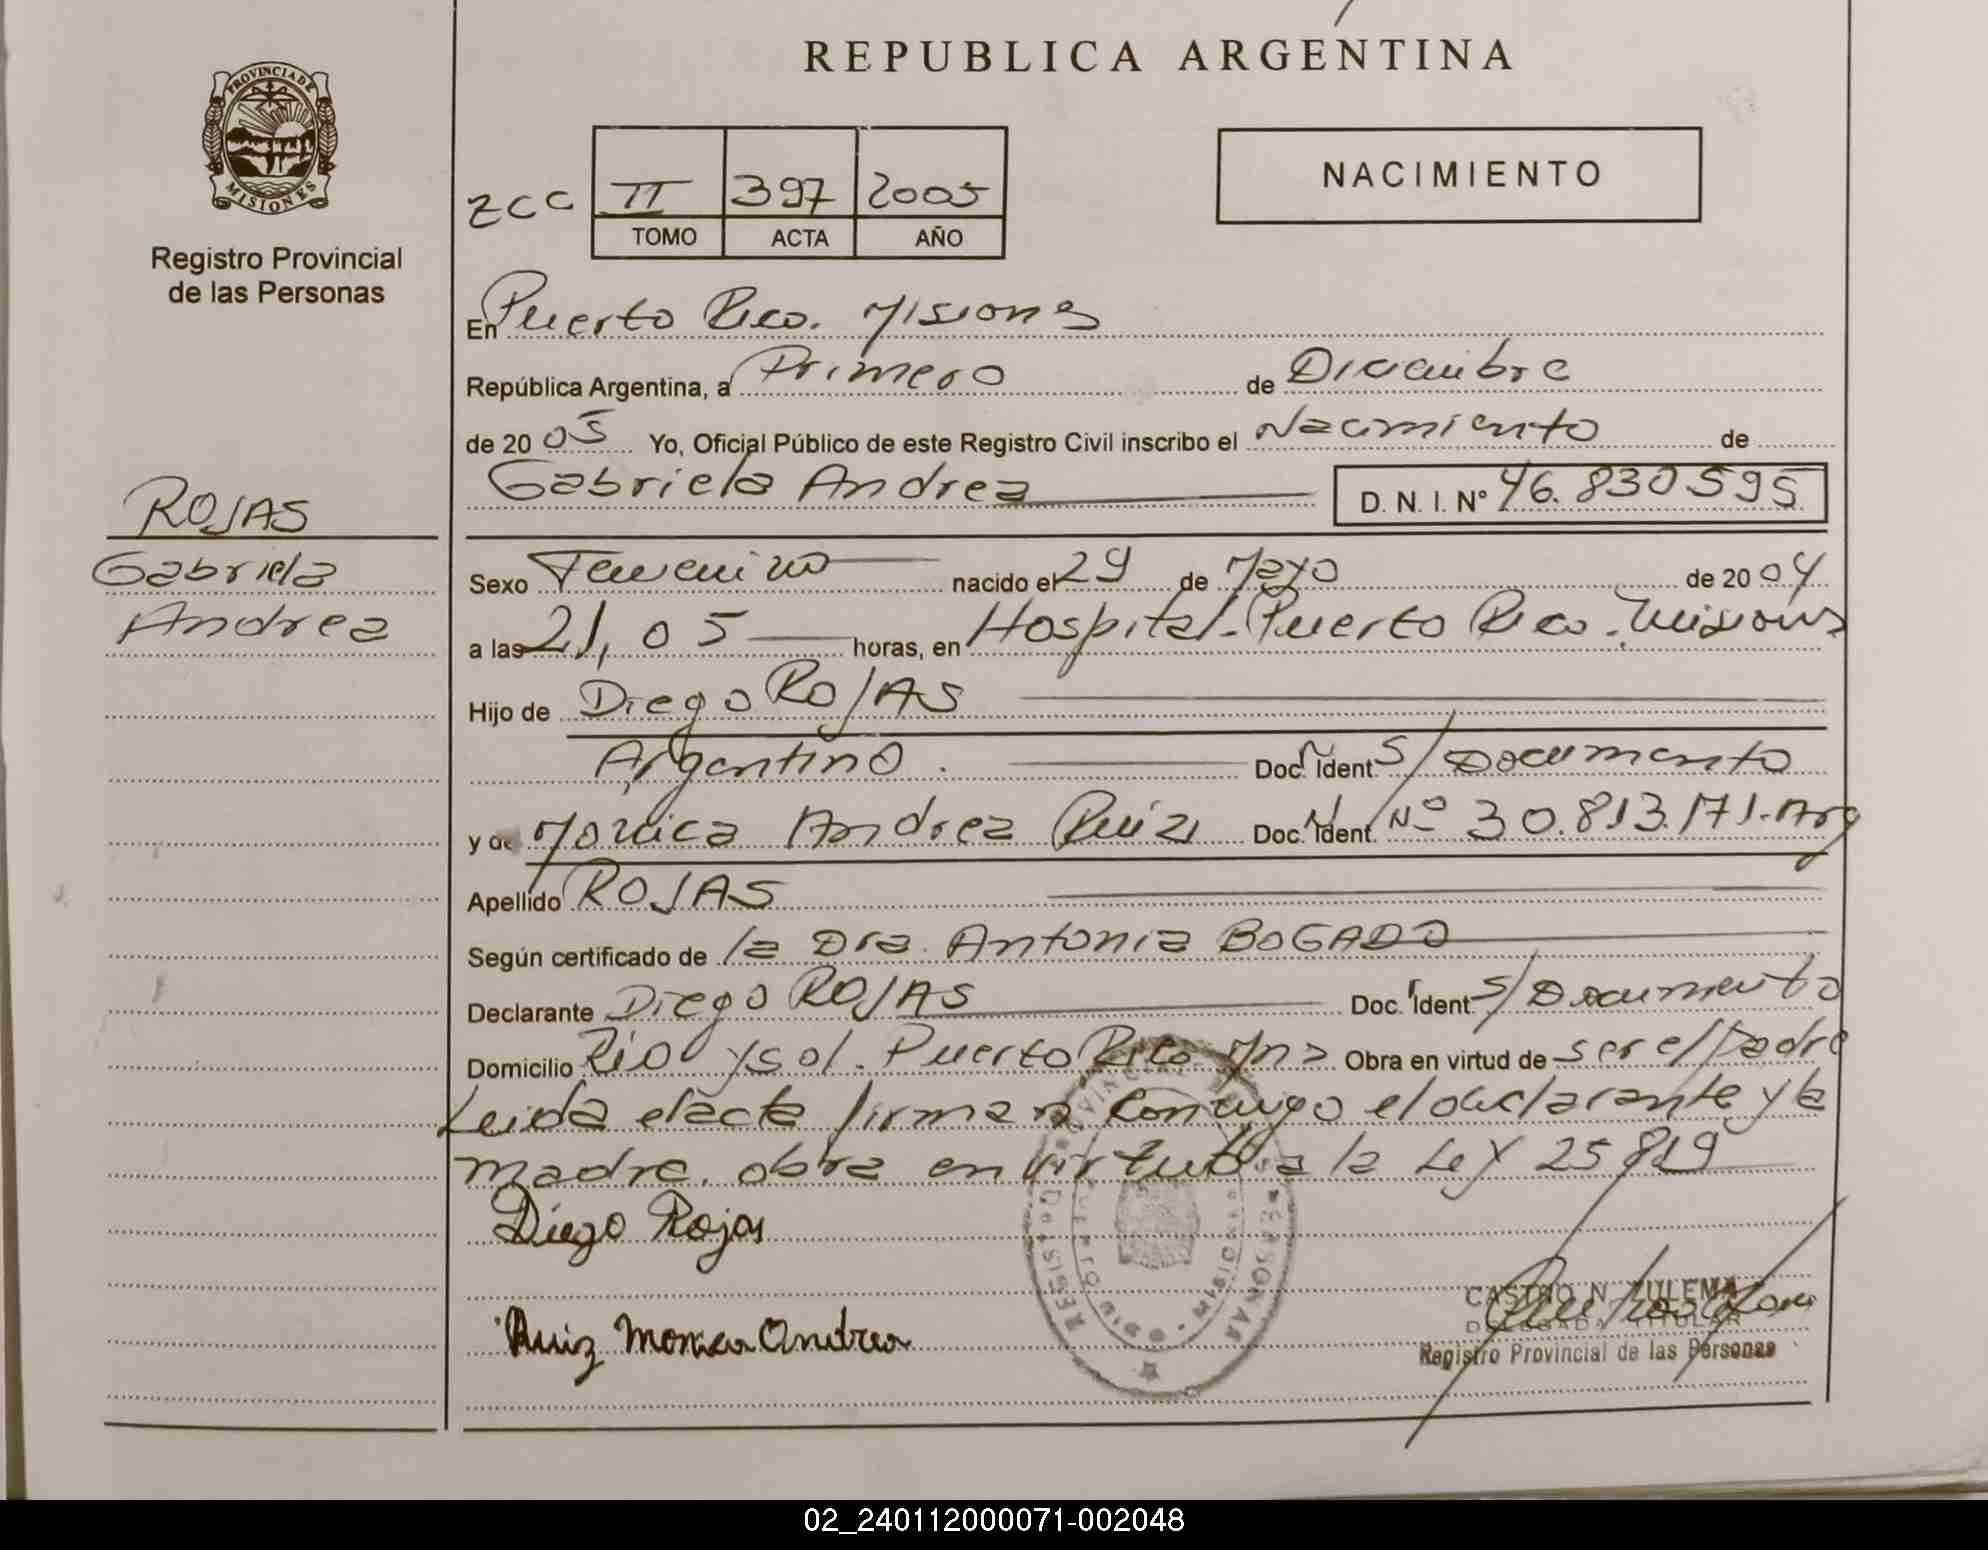 REPUBLICA ARGENTINA
PROVINCIA DE
MISIONES
Registro Provincial
de las Personas
NACIMIENTO
ZCC II 397 2005
TOMO ACTA AÑO
En Puerto Rico. Misiones
República Argentina, a Primero de Diciembre
de 20 05 Yo, Oficial Público de este Registro Civil inscribo el Nacimiento de
Gabriela Andrea D. N. I. Nº 46.830.595
ROJAS
Gabriela
Andrea
Sexo Femenino nacido el 29 de Mayo de 20 04
a las 21,05 horas, en Hospital-Puerto Rico. Misiones
Hijo de Diego ROJAS
Argentino. Doc. Ident. S/Documento
y de Mónica Andrea Ruiz Doc. Ident. Nº 30.813.171-Arg
Apellido ROJAS
Según certificado de la Dra. Antonia BOGADO
Declarante Diego ROJAS Doc. Ident. S/Documento
Domicilio Rio y Sol. Puerto Rico Mns Obra en virtud de ser el Padre
Leida el acta firman conmigo el declarante y la
madre. obra en virtud a la Ley 25819
Diego Rojas
Ruiz Monica Andrea
CASTRO N. ZULEMA
DELEGADA TITULAR
Registro Provincial de las Personas
02_240112000071-002048